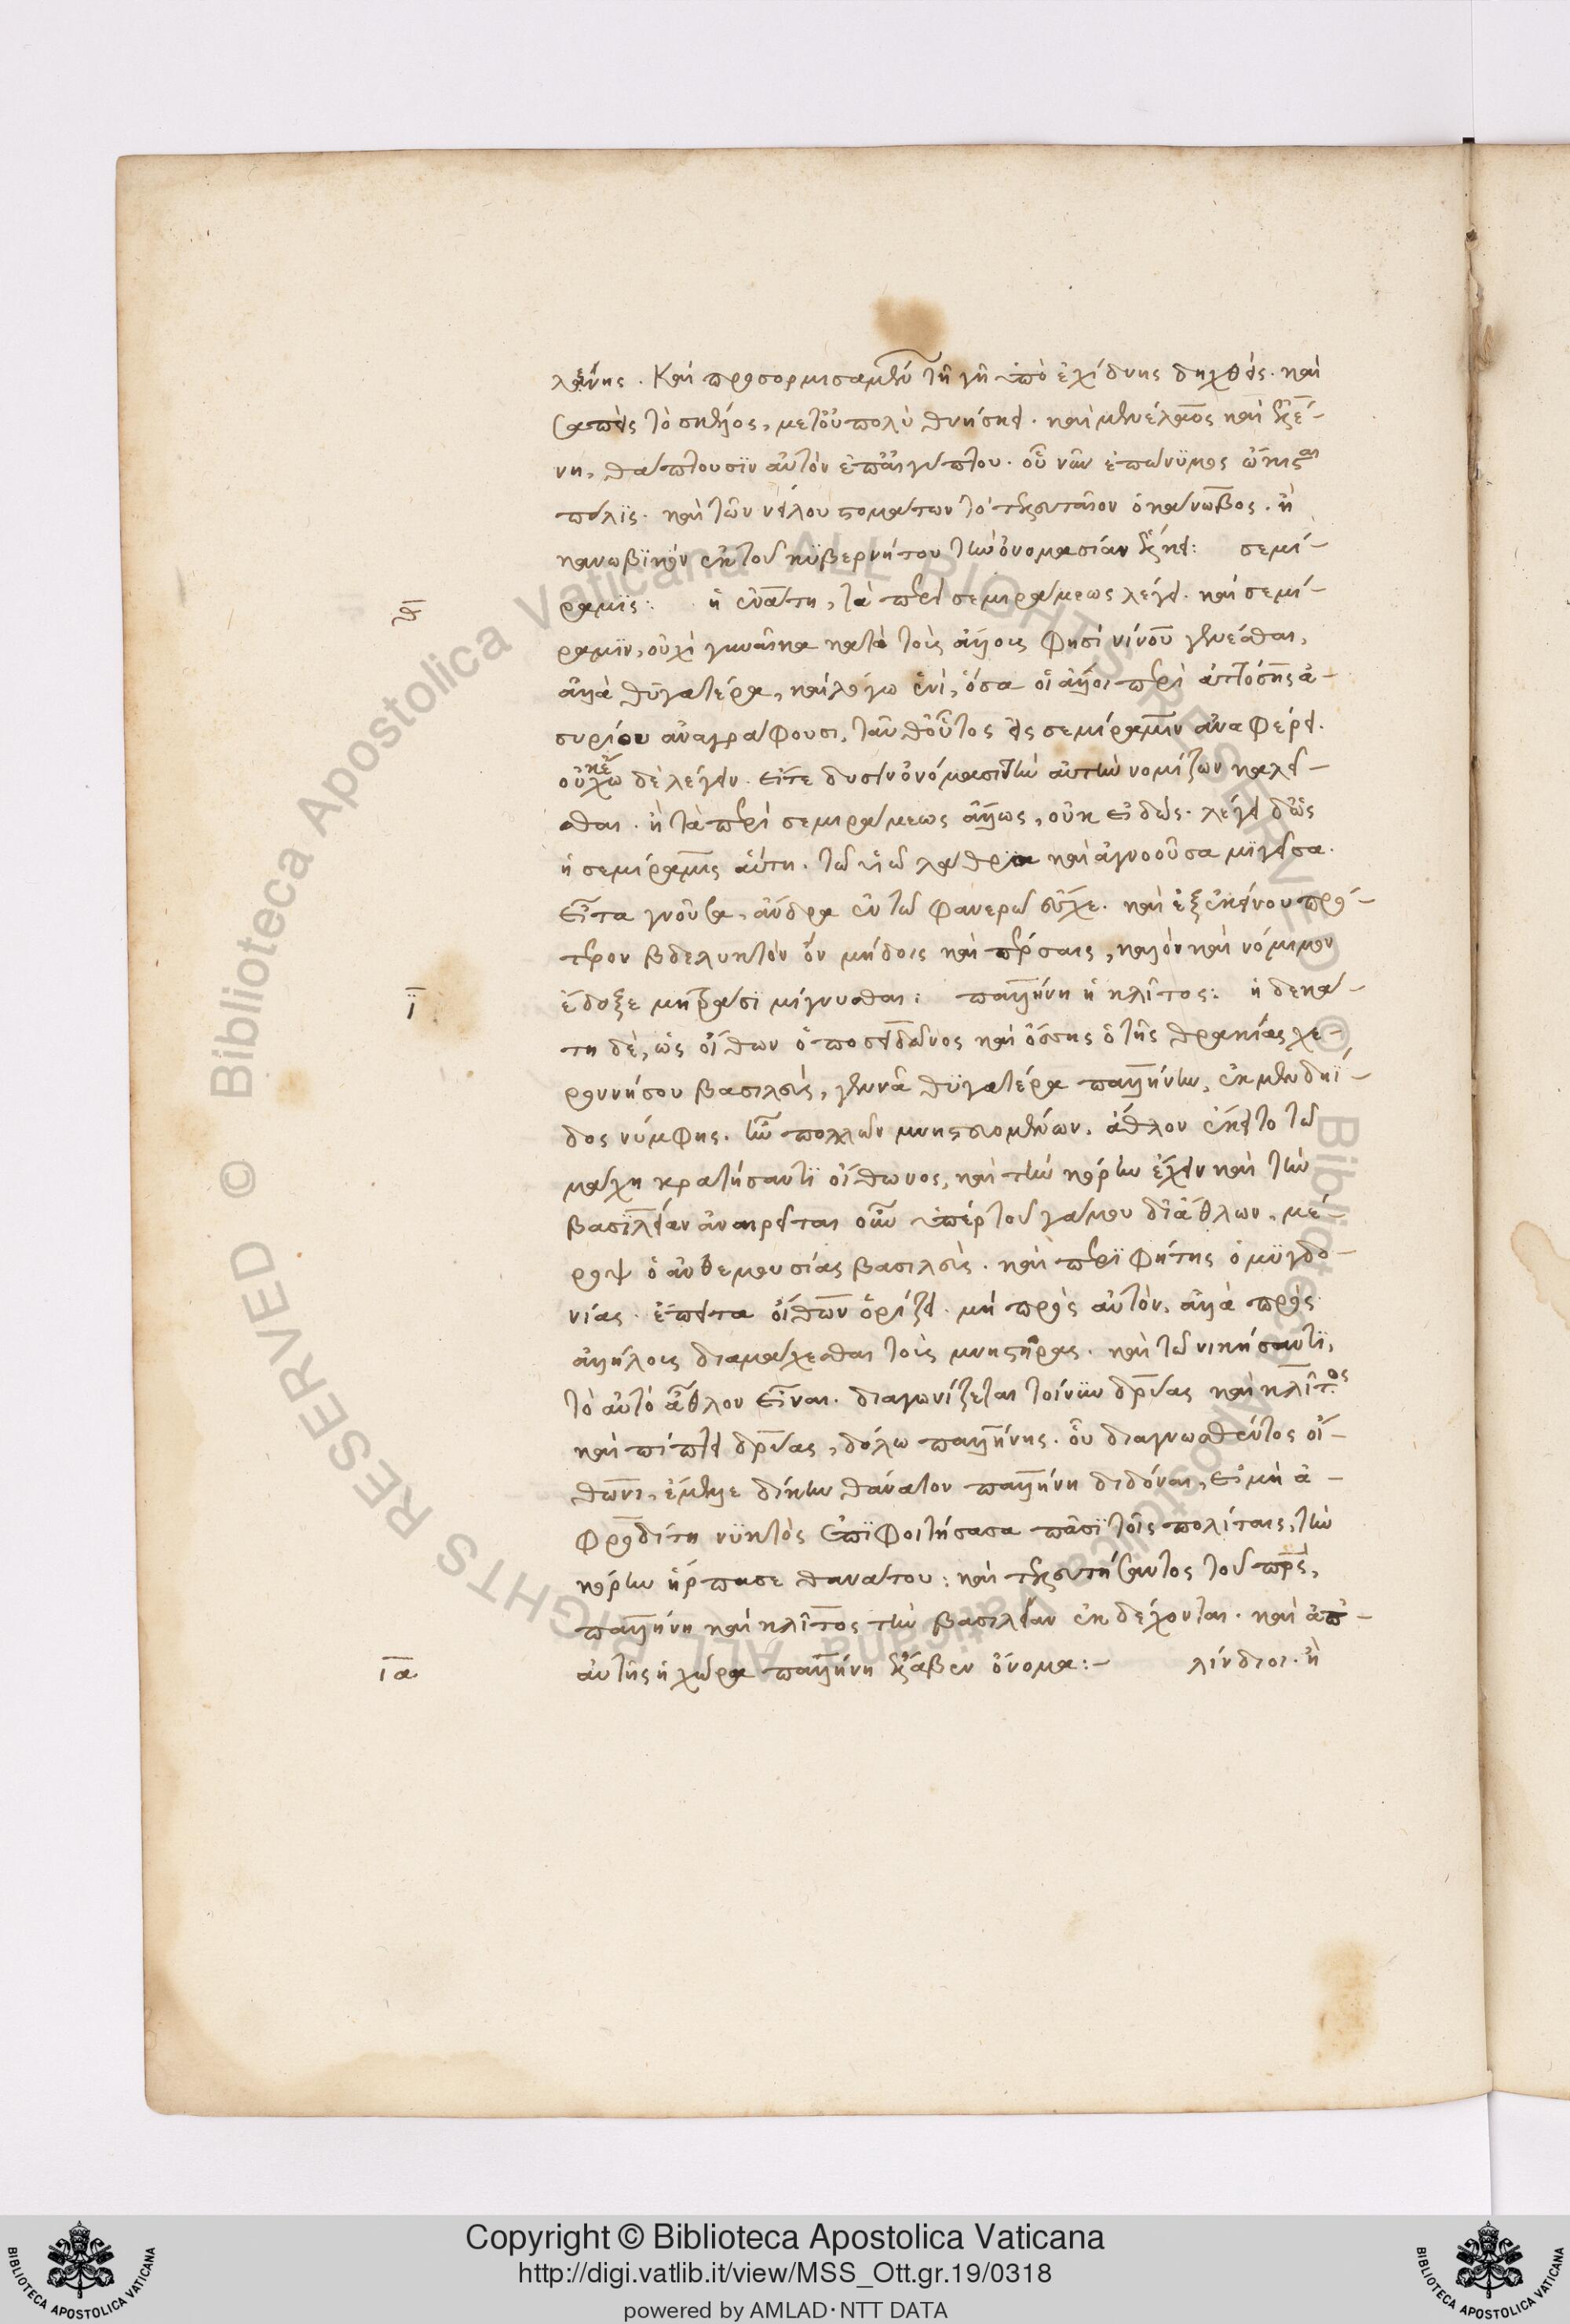 λένης. Καὶ προσορμισαμένου τῇ γῇ ὑπὸ ἐχίδνης δηχθεὶς. καὶ
σαπεὶς τὸ σκέλος, μετ' οὐ πολὺ θνήσκει. καὶ μενέλαος καὶ ἑλέ-
νη, θάπτουσϊν αὐτὸν ἐπ' αἰγύπτου. οὗ νῦν ἐπωνϋμος ᾤκισται
πόλϊς. καὶ τῶν νείλου στομάτων τὸ τελευταῖον ὁ κάνωβος. ἢ
κανωβϊκὸν ἐκ τοῦ κϋβερνήτου τὴν ὀνομασίαν ἕλκει: σεμί-
θ ραμϊς: ἡ ἐνάτη, τὰ περὶ σεμιράμεως λέγει. καὶ σεμί-
ραμϊν, οὐχὶ γυναῖκα κατὰ τοὺς ἄλλους φησὶ νίνου γενέσθαι,
ἀλλὰ θϋγατέρα, καὶ λόγῳ ἑνὶ, ὅσα οἱ ἄλλοι περὶ ἀττόσης ἀ-
συρίου ἀναγράφουσι, ταῦθ' οὗτος εἰς σεμίραμιν ἀναφέρει.
οὐκ ἔχω δὲ λέγειν. εἴτε δυσὶν ὀνόμασιν τὴν αὐτὴν νομίζων καλεῖ-
σθαι. ἢ τὰ περὶ σεμιράμεως ἄλλως, οὐκ εἰδώς. λέγει δ' ὡς
ἡ σεμίραμις αὕτη. τῷ υἱῷ λάθρϊα καὶ ἀγνοοῦσα μϊγεῖσα.
εἶτα γνοῦσα, ἄνδρα ἐν τῷ φανερῷ ἔσχε. καὶ ἐξ ἐκείνου πρό-
τερον βδελυκτὸν ὂν μήδοις καὶ πέρσαις, καλὸν καὶ νόμιμον
ϊ ἔδοξε μητράσϊ μίγνυσθαι: παλλήνη ἡ κλῖτος: ἡ δεκά-
τη δὲ, ὡς οἴθων ὁ ποσειδῶνος καὶ ὄσσης ὁ τῆς θρακίας χε-
ρρονήσου βασιλεὺς, γεννᾶ θϋγατέρα παλλήνην, ἐκ μενδηΐ-
δος νύμφης. ὧν πολλῶν μνηστευομένων. ἆθλον ἔκειτο τῷ
μάχῃ κρατήσαντϊ οἴθωνος, καὶ τὴν κόρην ἔχειν καὶ τὴν
βασϊλείαν ἀναιρεῖται οὖν ὑπὲρ τοῦ γάμου δι' ἄθλων. μέ-
ροψ ὁ ἀνθεμουσίας βασιλεὺς. καὶ περϊφήτης ὁ μϋγδο-
νίας. ἔπειτα οἴθων ὁρίζει. μὴ πρὸς αὐτὸν, ἀλλὰ πρὸς
ἀλλήλους διαμάχεσθαι τοὺς μνηστῆρας. καὶ τῷ νικήσαντϊ,
τὸ αὐτὸ ἆθλον εἶναι. διαγωνίζεται τοίνυν δρύας καὶ κλῖτος
καὶ πίπτει δρύας, δόλῳ παλλήνης. οὗ διαγνωσθέντος οἴ-
θωνι, ἔμελλε δίκην θάνατον παλλήνη διδόναι, εἰ μὴ ἀ-
φροδίτη νϋκτὸς ἐπϊφοιτήσασα πᾶσϊ τοῖς πολίταις, τὴν
κόρην ἥρπασε θανάτου: καὶ τελευτήσαντος τοῦ πατρὸς,
παλλήνη καὶ κλῖτος τὴν βασιλείαν ἐκδέχονται. καὶ ἀπ'
ια αὐτῆς ἡ χώρα παλλήνη ἔλαβεν ὄνομα:- λίνδιοι. ἡ
Copyright © Biblioteca Apostolica Vaticana
http://digi.vatlib.it/view/MSS_Ott.gr.19/0318
powered by AMLAD·NTT DATA